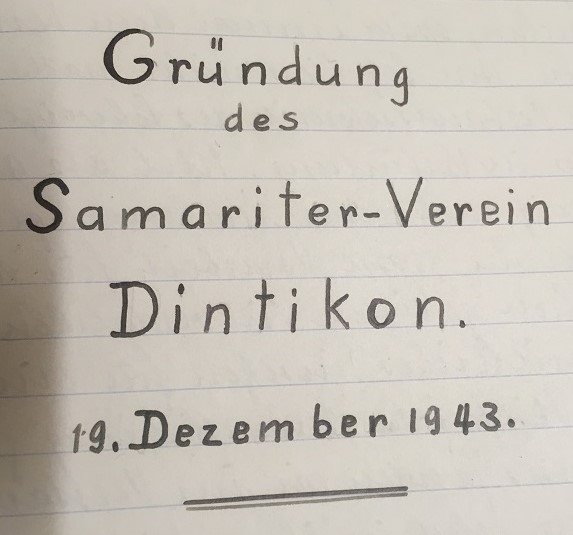 Gründung
des
Samariter-Verein
Dintikon.
19. Dezember 1943.